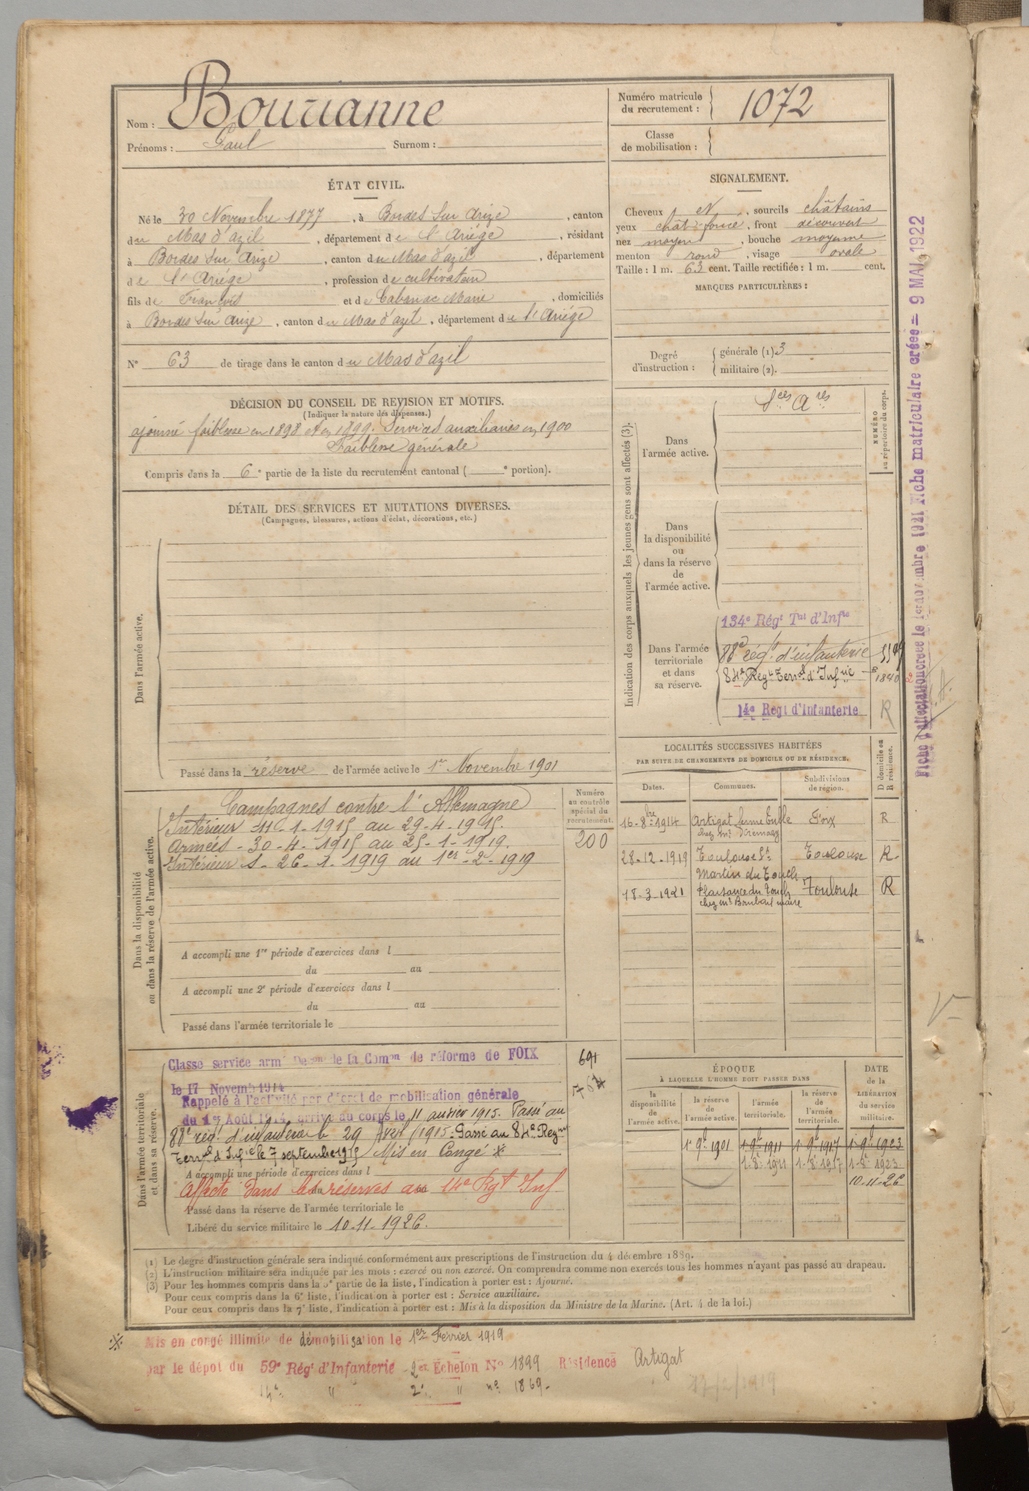 Nom : Bourianne
Prénoms : Paul Surnom :
Numéro matricule du recrutement : 1072
Classe de mobilisation :
ÉTAT CIVIL.
Né le 30 Novembre 1877, à Bordes sur Arize, canton
du Mas d'azil, département de l'Ariège, résidant
à Bordes sur Arize, canton du Mas d'azil, département
de l'Ariège, profession de cultivateur
fils de François et de Cabanac Marie, domiciliés
à Bordes sur Arize, canton du Mas d'azil, département de l'Ariège
N° 63 de tirage dans le canton du Mas d'azil
SIGNALEMENT.
Cheveux N, sourcils châtains
yeux chât foncé, front découvert
nez moyen, bouche moyenne
menton rond, visage ovale
Taille : 1 m. 63 cent. Taille rectifiée : 1 m. cent.
MARQUES PARTICULIÈRES :
Degré d'instruction : générale (1) 3
militaire (2).
DÉCISION DU CONSEIL DE REVISION ET MOTIFS.
(Indiquer la nature des dispenses.)
ajourné faiblesse en 1898 et en 1899. Services auxiliaires en 1900
Faiblesse générale
Compris dans la 6e partie de la liste du recrutement cantonal ( e portion).
DÉTAIL DES SERVICES ET MUTATIONS DIVERSES.
(Campagnes, blessures, actions d'éclat, décorations, etc.)
Dans l'armée active.
Passé dans la réserve de l'armée active le 1er Novembre 1901
Indication des corps auxquels les jeunes gens sont affectés (3).
NUMÉRO au répertoire du corps.
Dans l'armée active.
Sces Ares
Dans la disponibilité ou dans la réserve de l'armée active.
Dans l'armée territoriale et dans sa réserve.
134e Régt Tal d'Infie
88e rég. d'infanterie
84e Regt Terral d'Infrie 1840
14e Regt d'Infanterie R
Fiche matriculaire créée = 9 MAI 1922
LOCALITÉS SUCCESSIVES HABITÉES
PAR SUITE DE CHANGEMENTS DE DOMICILE OU DE RÉSIDENCE.
Dates. Communes. Subdivisions de région. D domicile ou R résidence.
16-8bre-1914 Artigat Foix R
28-12-1919 Toulouse St Martin du Touch Toulouse R
18-3-1921 Plaisance du Touch Toulouse R
Dans la disponibilité ou dans la réserve de l'armée active.
Numéro au contrôle spécial du recrutement.
200
Campagnes contre l'Allemagne
Intérieur 11-1-1915 au 29-4-1915.
Armées - 30-4-1915 au 25-1-1919.
Intérieur 1- 26-1-1919 au 1er-2-1919
A accompli une 1re période d'exercices dans l
du au
A accompli une 2e période d'exercices dans l
du au
Passé dans l'armée territoriale le
Dans l'armée territoriale et dans sa réserve.
Classe service armé la Comon de réforme de FOIX
le 17 Novemb 1914 691
Rappelé à l'activité par décret de mobilisation générale
du 1er Août 1914, arrivé au corps le 11 janvier 1915. Passé au
88e rég. d'infanterie le 29 Avril 1915. Passé au 84e Regt
Terral d'Infie le 7 septembre 1915 Mis en Congé
A accompli une période d'exercices dans l
Affecté dans les réserves au 14e Rgt Inf
Passé dans la réserve de l'armée territoriale le
Libéré du service militaire le 10-11-1926.
ÉPOQUE
A LAQUELLE L'HOMME DOIT PASSER DANS
la disponibilité de l'armée active. la réserve de l'armée active. l'armée territoriale. la réserve de l'armée territoriale. DATE de la LIBÉRATION du service militaire.
1-9bre 1901 1-9bre 1911 1-9bre 1917 1-9bre 1923
10-11-26
(1) Le degré d'instruction générale sera indiqué conformément aux prescriptions de l'instruction du 4 décembre 1889.
(2) L'instruction militaire sera indiquée par les mots : exercé ou non exercé. On comprendra comme non exercés tous les hommes n'ayant pas passé au drapeau.
(3) Pour les hommes compris dans la 5e partie de la liste, l'indication à porter est : Ajourné.
Pour ceux compris dans la 6e liste, l'indication à porter est : Service auxiliaire.
Pour ceux compris dans la 7e liste, l'indication à porter est : Mis à la disposition du Ministre de la Marine. (Art. 4 de la loi.)
Mis en congé illimité de démobilisation le 1er Fevrier 1919
par le dépôt du 59e Régt d'Infanterie - 2e Echelon N° 1899 Résidence Artigat
14e " 2e " n° 1869-